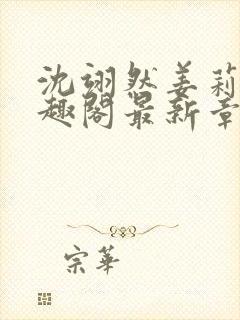 沈翊然姜莉
趣阁最新章
宗華